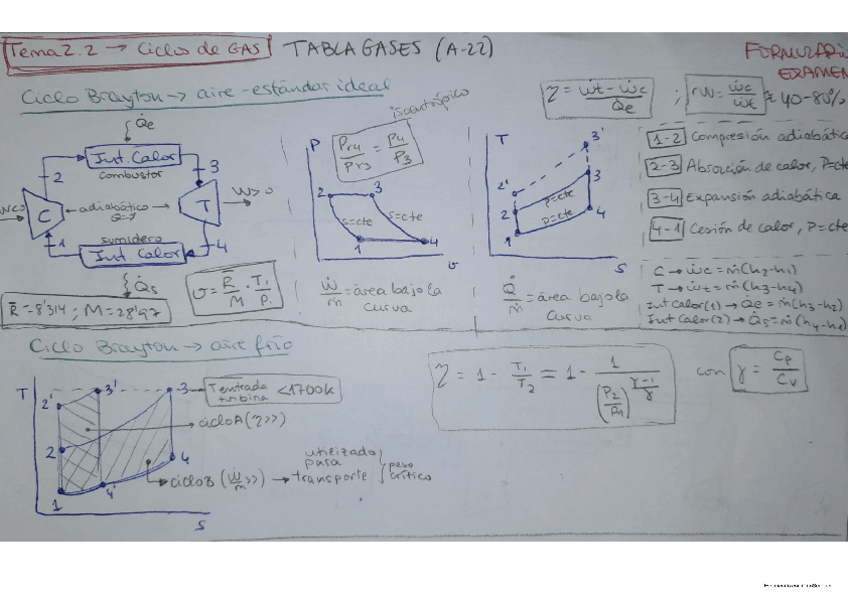 Tema 2.2 → Ciclo de GAS TABLA GASES (A-22) FORMULARIO EXAMEN
Ciclo Brayton → aire-estándar ideal
η = (ẇt - ẇc) / Q̇e ; rw = ẇc / ẇt ≈ 40-80%
Q̇e
Int. Calor
combustor
2
3
C
← adiabático →
T
W>0
1
sumidero
4
Int. Calor
Q̇s
R̄ = 8'314 ; M = 28'97
υ = R̄/M · T1/P1
isoentrópico
Pr4/Pr3 = P4/P3
P
2 3
s=cte s=cte
1 4
υ
ẇ/ṁ = área bajo la curva
T
3'
2'
3
P=cte
2
P=cte
4
1
s
Q̇/ṁ = área bajo la curva
1-2 Compresión adiabática
2-3 Absorción de calor, P=cte
3-4 Expansión adiabática
4-1 Cesión de calor, P=cte
C → ẇc = ṁ(h2-h1)
T → ẇt = ṁ(h3-h4)
Int calor(1) → Q̇e = ṁ(h3-h2)
Int Calor(2) → Q̇s = ṁ(h4-h1)
Ciclo Brayton → aire frío
T
2'
3'
3
T entrada turbina < 1700k
ciclo A (η>>)
2
4
ciclo B (ẇ/m >>) → utilizado para transporte } peso crítico
1
4'
s
η = 1 - T1/T2 = 1 - 1/(P2/P1)^((γ-1)/γ) con γ = Cp/Cv